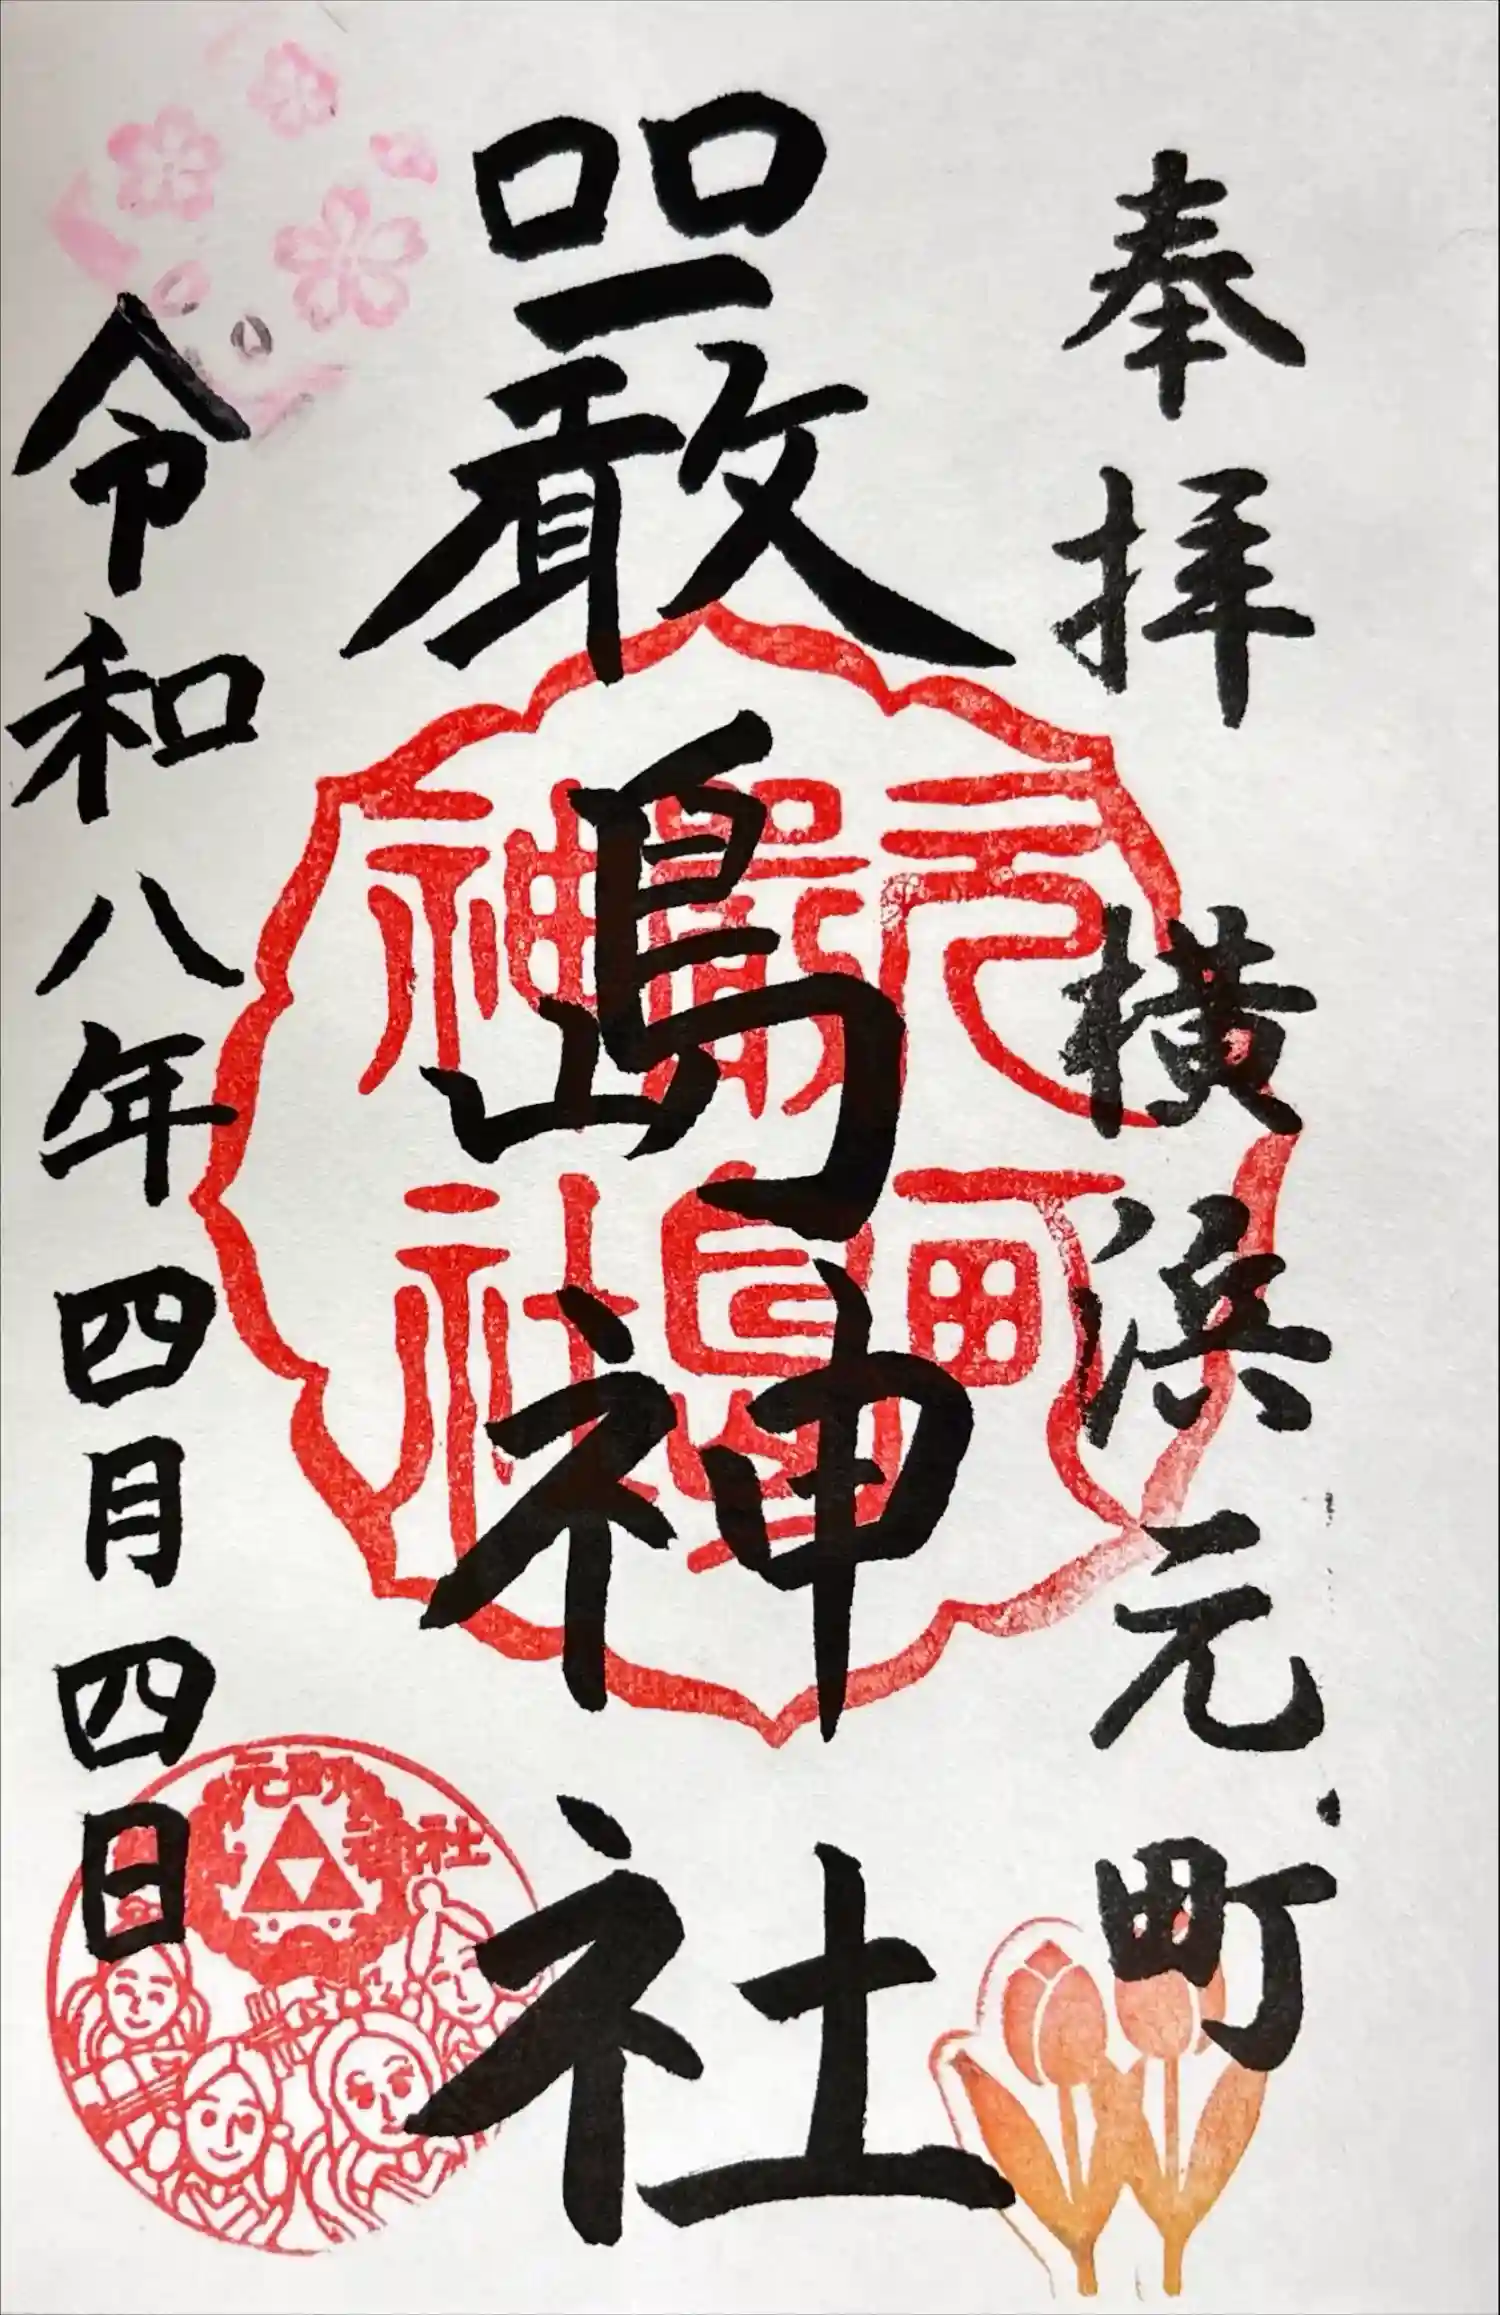 奉拝 横浜元町
嚴島神社
令和八年四月四日
元町
嚴島
神社
元町
神社